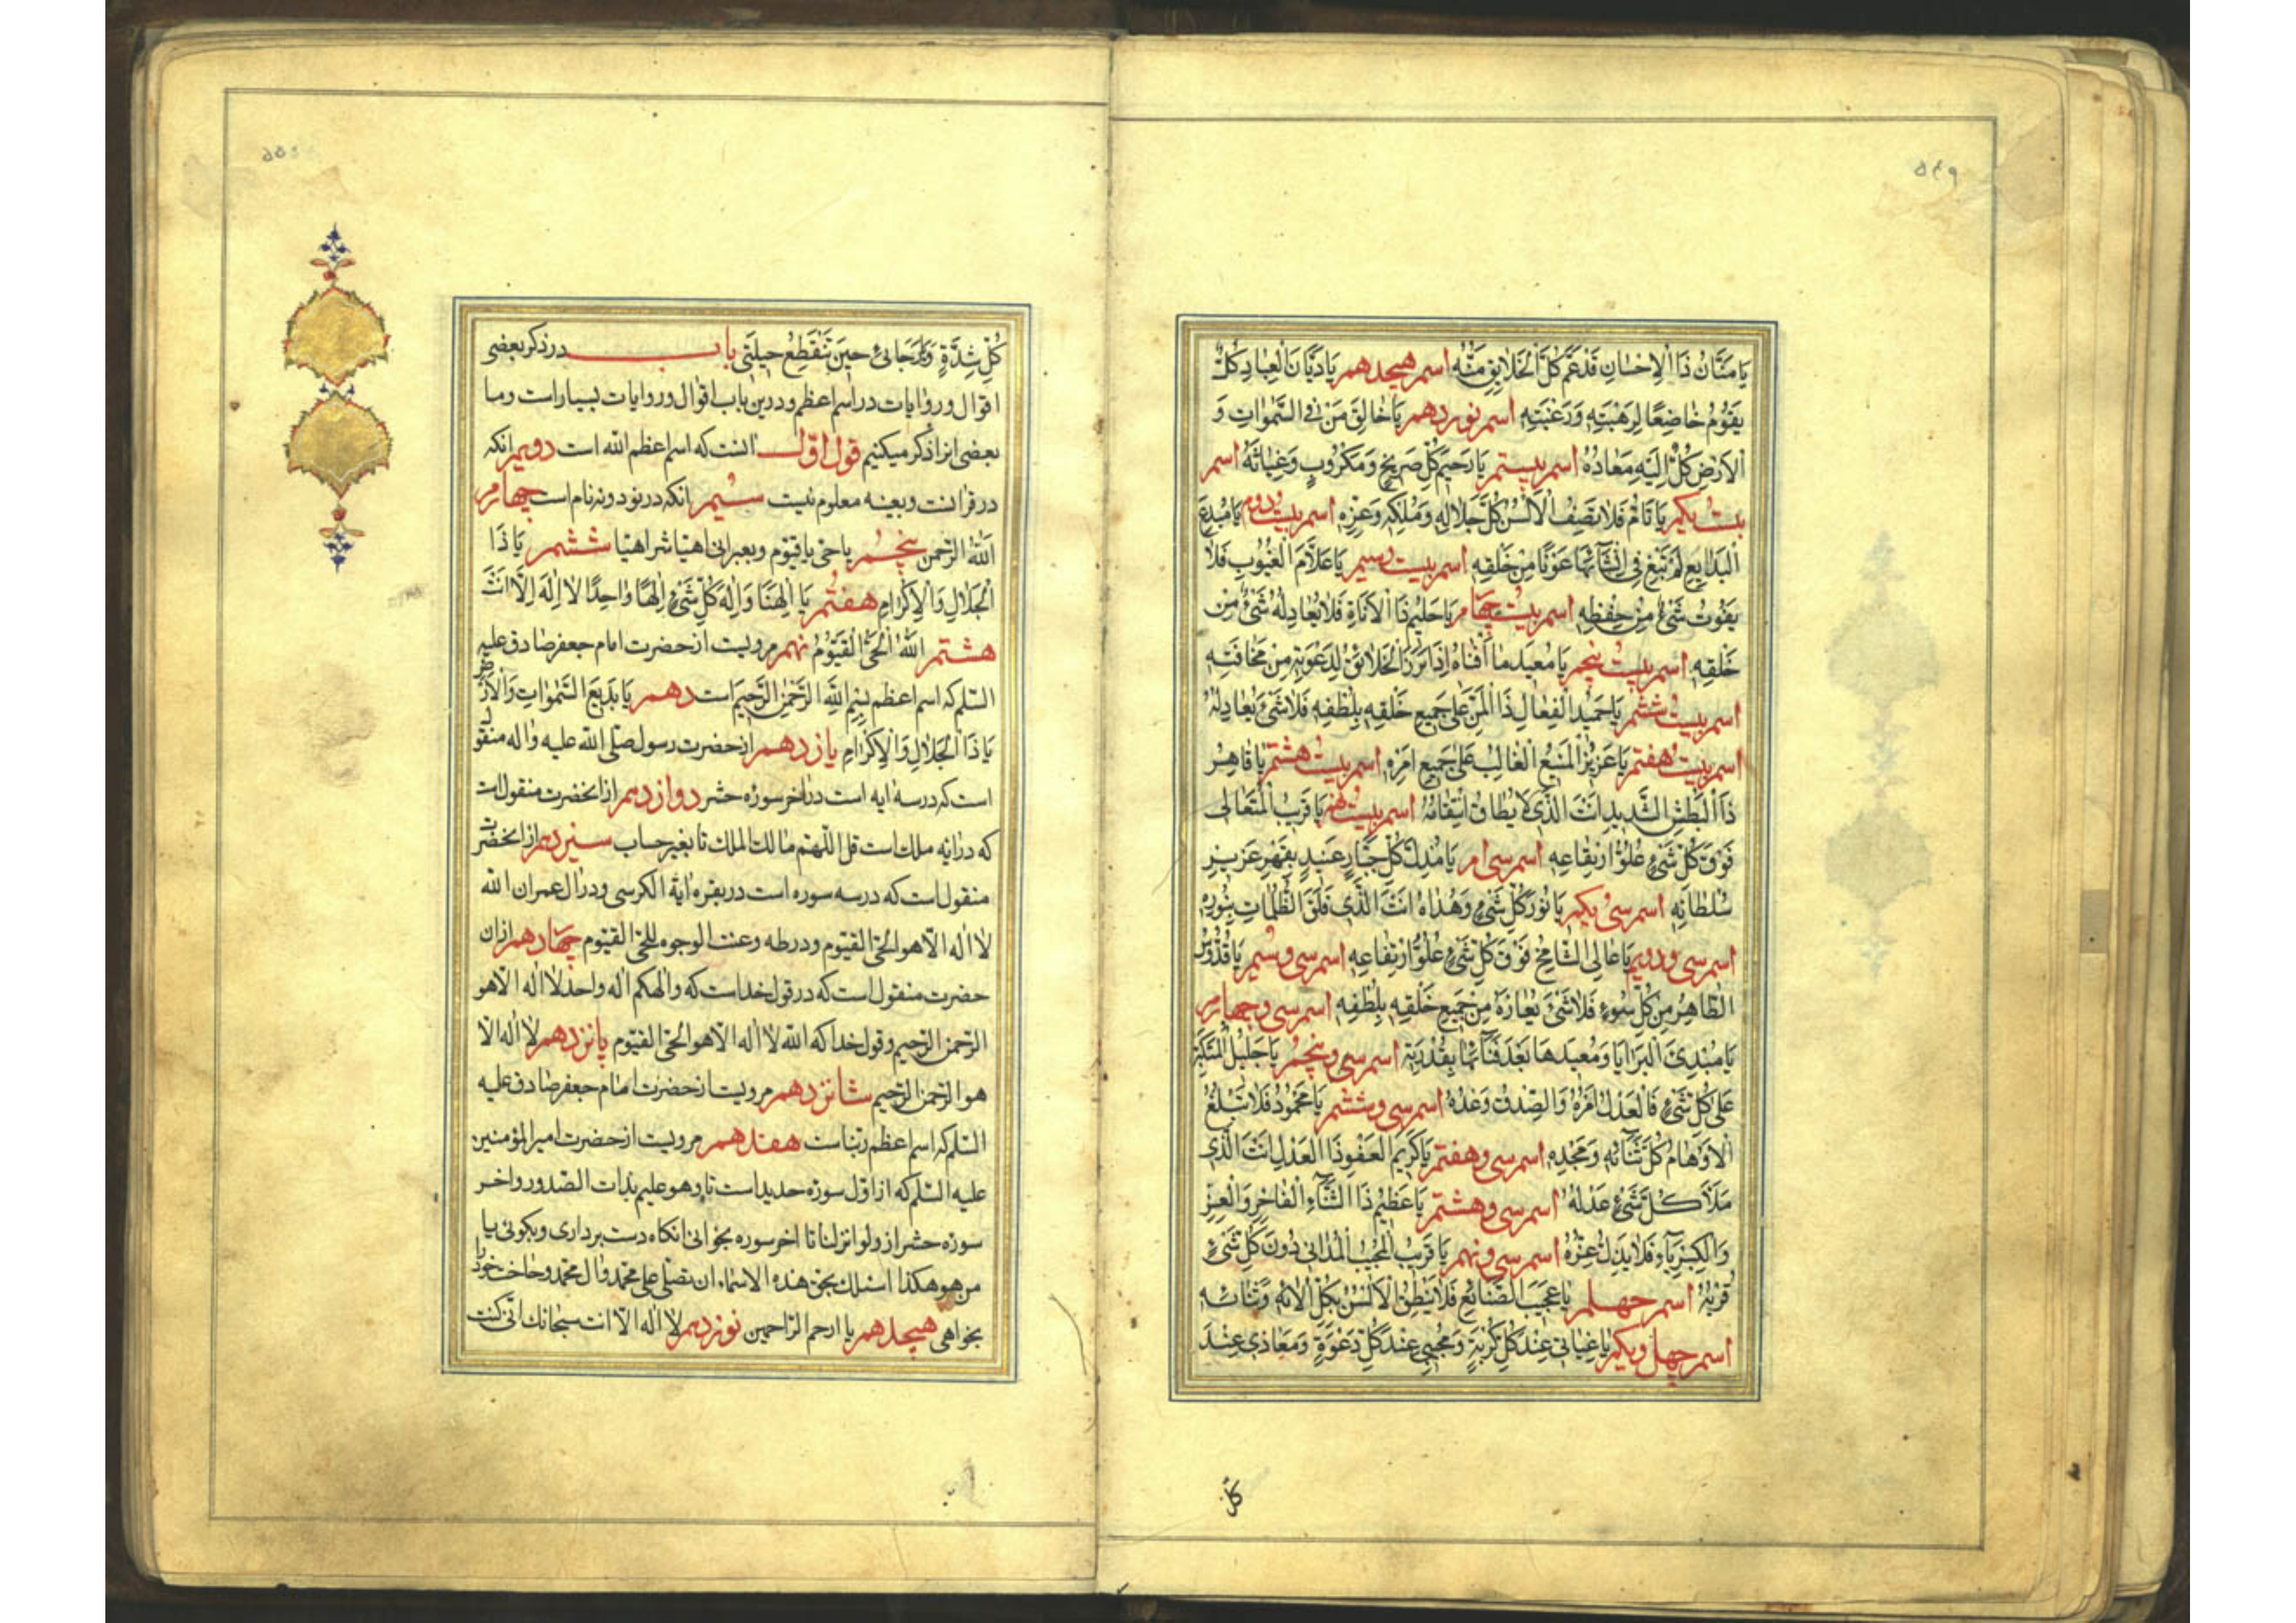 ۵۴۹
يَا مَنَّانُ ذَا الْاِحْسَانِ قَدْ عَمَّ كُلَّ الْخَلَايِقِ مَنُّهُ اسم هیجدهم يَا دَيَّانَ الْعِبَادِ كُلٌّ
يَقُوْمُ خَاضِعًا لِرَهْبَتِهِ وَرَغْبَتِهِ اسم نوزدهم يَا خَالِقَ مَنْ فِي السَّمٰوَاتِ وَ
الْاَرْضِ كُلٌّ اِلَيْهِ مَعَادُهُ اسم بیستم يَا رَحِيْمَ كُلِّ صَرِيْخٍ وَمَكْرُوْبٍ وَغِيَاثَهُ اسم
بیست یکم يَا تَامُّ فَلَا تَصِفُ الْاَلْسُنُ كُلَّ جَلَالِهِ وَمُلْكِهِ وَعِزِّهِ اسم بیست دوم يَا مُبْدِعَ
الْبَدَايِعِ لَمْ تَبْغِ فِي اِنْشَآئِهَا عَوْنًا مِنْ خَلْقِهِ اسم بیست سیم يَا عَلَّامَ الْغُيُوْبِ فَلَا
يَفُوْتُ شَيْءٌ مِنْ حِفْظِهِ اسم بیست چهارم يَا حَلِيْمُ ذَا الْاَنَاةِ فَلَا يُعَادِلُهُ شَيْءٌ مِنْ
خَلْقِهِ اسم بیست پنجم يَا مُعِيْدَ مَا اَفْنَاهُ اِذَا بَرَزَ الْخَلَائِقُ لِدَعْوَتِهِ مِنْ مَخَافَتِهِ
اسم بیست ششم يَا حَمِيْدَ الْفِعَالِ ذَا الْمَنِّ عَلٰى جَمِيْعِ خَلْقِهِ بِلُطْفِهِ فَلَا شَيْءَ يُعَادِلُهُ
اسم بیست هفتم يَا عَزِيْزُ الْمَنِيْعُ الْغَالِبُ عَلٰى جَمِيْعِ اَمْرِهِ اسم بیست هشتم يَا قَاهِرُ
ذَا الْبَطْشِ الشَّدِيْدِ اَنْتَ الَّذِيْ لَا يُطَاقُ انْتِقَامُهُ اسم بیست نهم يَا قَرِيْبُ الْمُتَعَالِي
فَوْقَ كُلِّ شَيْءٍ عُلُوُّ ارْتِفَاعِهِ اسم سی ام يَا مُذِلَّ كُلِّ جَبَّارٍ عَنِيْدٍ بِقَهْرِ عَزِيْزِ
سُلْطَانِهِ اسم سی یکم يَا نُوْرَ كُلِّ شَيْءٍ وَهُدَاهُ اَنْتَ الَّذِيْ فَلَقَ الظُّلُمَاتِ بِنُوْرِهِ
اسم سی و دویم يَا عَالِي الشَّامِخُ فَوْقَ كُلِّ شَيْءٍ عُلُوُّ ارْتِفَاعِهِ اسم سی و سیم يَا قُدُّوْسُ
الطَّاهِرُ مِنْ كُلِّ سُوْءٍ فَلَا شَيْءَ يُعَازُهُ مِنْ جَمِيْعِ خَلْقِهِ بِلُطْفِهِ اسم سی و چهارم
يَا مُبْدِئَ الْبَرَايَا وَمُعِيْدَهَا بَعْدَ فَنَآئِهَا بِقُدْرَتِهِ اسم سی و پنجم يَا جَلِيْلُ الْمُتَكَبِّرُ
عَلٰى كُلِّ شَيْءٍ فَالْعَدْلُ اَمْرُهُ وَالصِّدْقُ وَعْدُهُ اسم سی و ششم يَا مَحْمُوْدُ فَلَا تَبْلُغُ
الْاَوْهَامُ كُلَّ ثَنَآئِهِ وَمَجْدِهِ اسم سی و هفتم يَا كَرِيْمَ الْعَفْوِ ذَا الْعَدْلِ اَنْتَ الَّذِيْ
مَلَأَ كُلَّ شَيْءٍ عَدْلُهُ اسم سی و هشتم يَا عَظِيْمُ ذَا الثَّنَآءِ الْفَاخِرِ وَالْعِزِّ
وَالْكِبْرِيَآءِ فَلَا يَذِلُّ عِزُّهُ اسم سی و نهم يَا قَرِيْبُ الْمُجِيْبُ الْمُدَانِي دُوْنَ كُلِّ شَيْءٍ
قُرْبُهُ اسم چهلم يَا عَجِيْبَ الصَّنَائِعِ فَلَا يَنْطِقُ الْاَلْسُنُ بِكُلِّ اٰلَائِهِ وَثَنَائِهِ
اسم چهل و یکم يَا غِيَاثِي عِنْدَ كُلِّ كُرْبَةٍ وَمُجِيْبِي عِنْدَ كُلِّ دَعْوَةٍ وَمَعَاذِي عِنْدَ
كل
كُلِّ شِدَّةٍ وَيَا رَجَائِي حِيْنَ تَنْقَطِعُ حِيْلَتِي باب در ذکر بعضی
اقوال و روایات در اسم اعظم و درین باب اقوال و روایات بسیار است و ما
بعضی از انرا ذکر میکنیم قول اول انست که اسم اعظم الله است دویم انکه
در قرانست و بعینه معلوم نیست سیم انکه در نود و نه نام است چهارم
اللّٰهُ الرَّحْمٰن پنجم یا حی یا قیوم و بعبرانی اهیا شراهیا ششم يَا ذَا
الْجَلَالِ وَالْاِكْرَامِ هفتم يَا اِلٰهَنَا وَاِلٰهَ كُلِّ شَيْءٍ اِلٰهًا وَاحِدًا لَا اِلٰهَ اِلَّا اَنْتَ
هشتم اللّٰهُ الْحَيُّ الْقَيُّوْمُ نهم مرویست از حضرت امام جعفر صادق علیه
السلم که اسم اعظم بِسْمِ اللّٰهِ الرَّحْمٰنِ الرَّحِيْمِ است دهم يَا بَدِيْعَ السَّمٰوَاتِ وَالْاَرْضِ
يَا ذَا الْجَلَالِ وَالْاِكْرَامِ یازدهم از حضرت رسول صلی الله علیه واله منقول
است که در سه ایه است در اخر سوره حشر دوازدهم از انحضرت منقولست
که در ایه ملک است قل اللهم مالک الملک تا بغیر حساب سیزدهم از انحضرت
منقول است که در سه سوره است در بقره ایة الکرسی و در ال عمران الله
لا اله الا هو الحی القیوم و در طه وعنت الوجوه للحی القیوم چهاردهم از ان
حضرت منقول است که در قول خداست که والهکم اله واحد لا اله الا هو
الرحمن الرحیم و قول خدا که الله لا اله الا هو الحی القیوم پانزدهم لا اله الا
هو الرحمن الرحیم شانزدهم مرویست از حضرت امام جعفر صادق علیه
السلم که اسم اعظم ربنا است هفدهم مرویست از حضرت امیر المؤمنین
علیه السلم که از اول سوره حدید است تا وهو علیم بذات الصدور و اخر
سوره حشر از ولو انزلنا تا اخر سوره بخوانی انکاه دست برداری و بکوئی یا
من هو هکذا اسئلک بحق هذه الاسماء ان تصلی علی محمد وال محمد و حاجت خود را
بخواهی هیجدهم یا ارحم الراحمین نوزدهم لا اله الا انت سبحانک انی کنت